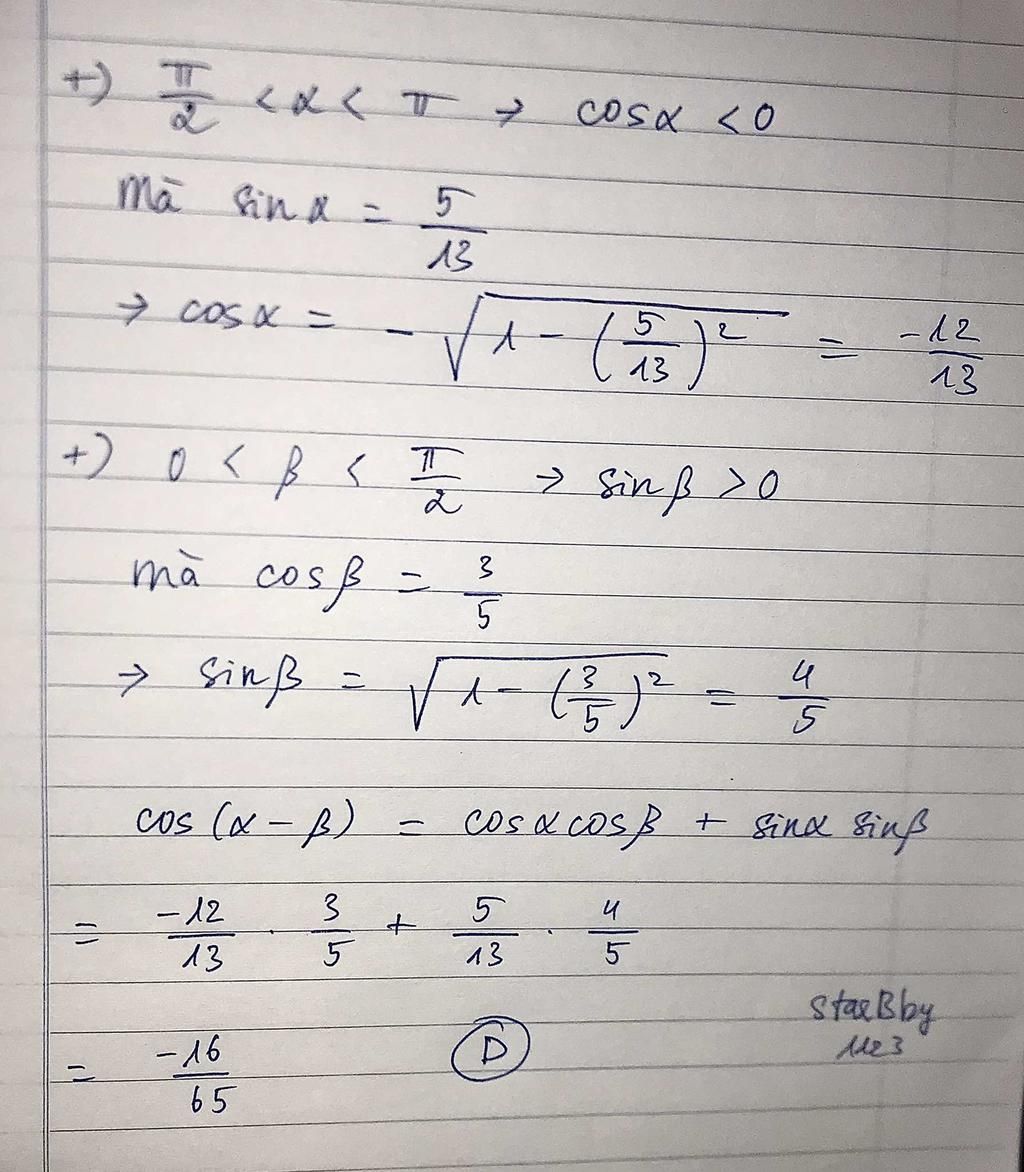 +) π/2 < α < π → cosα < 0
Mà sinα = 5/13
→ cosα = -√(1 - (5/13)²) = -12/13
+) 0 < β < π/2 → sinβ > 0
mà cosβ = 3/5
→ sinβ = √(1 - (3/5)²) = 4/5
cos (α - β) = cosα cosβ + sinα sinβ
= -12/13 . 3/5 + 5/13 . 4/5
= -16/65 D